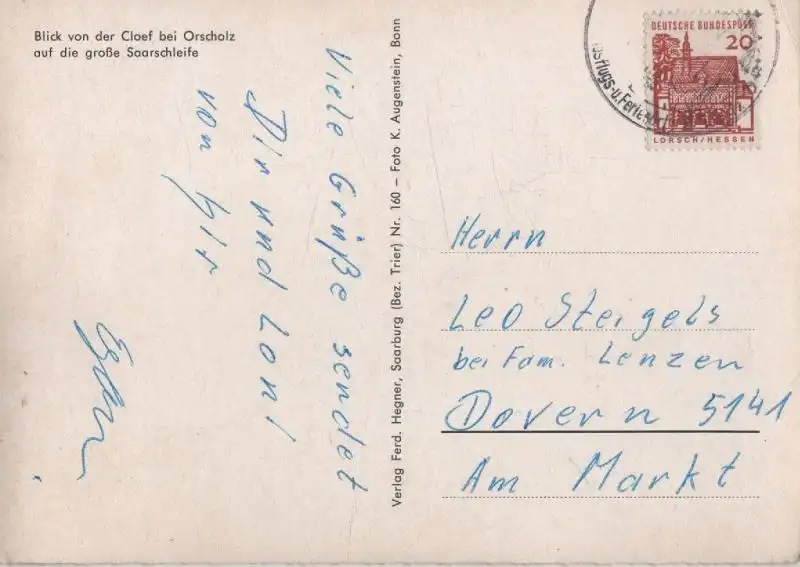 Blick von der Cloef bei Orscholz
auf die große Saarschleife
Viele Grüße sendet
Dir und Loni
von hir
Verlag Ferd. Hegner, Saarburg (Bez. Trier) Nr. 160 – Foto K. Augenstein, Bonn
DEUTSCHE BUNDESPOST
20
LORSCH/HESSEN
Herrn
Leo Steigels
bei Fam. Lenzen
Dovern 5141
Am Markt